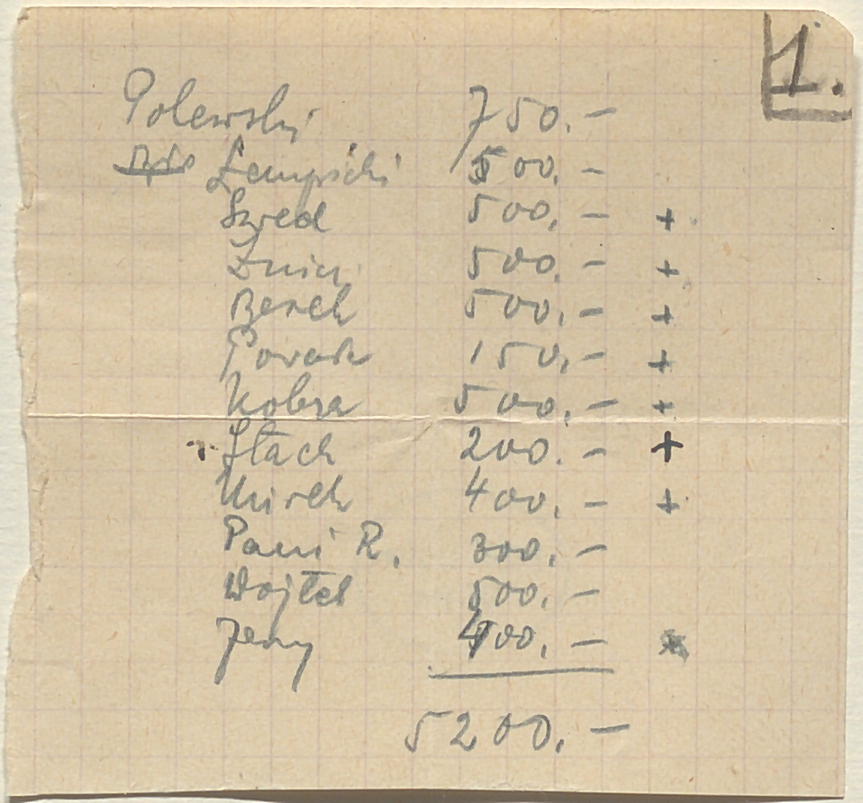 1.
Polewski 750.-
Łempicki 500.-
Szred 500.- +
Żnin 500.- +
Berek 500.- +
500.- +
150.- +
Kobra 500.- +
Stach 200.- +
Mirek 400.- +
Pani R. 300.-
Wojtek 500.-
Jerzy 400.-
5200.-